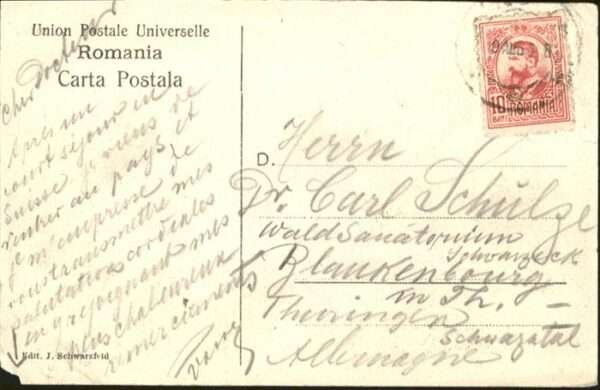 Union Postale Universelle
Romania
Carta Postala
Cher Docteur
Après un
court séjour en
Suisse je viens de
rentrer au pays et
je m'empresse de
vous transmettre mes
salutations cordiales
en y rejoignant mes
plus chaleureux
remerciements
Edit. J. Schwarzfeld
10 BANI ROMANIA
D. Herrn
Dr. Carl Schulze
Waldsanatorium
Schwarzeck
Blankenbourg
in Th. –
Thüringen
Schwazatal
Allemagne